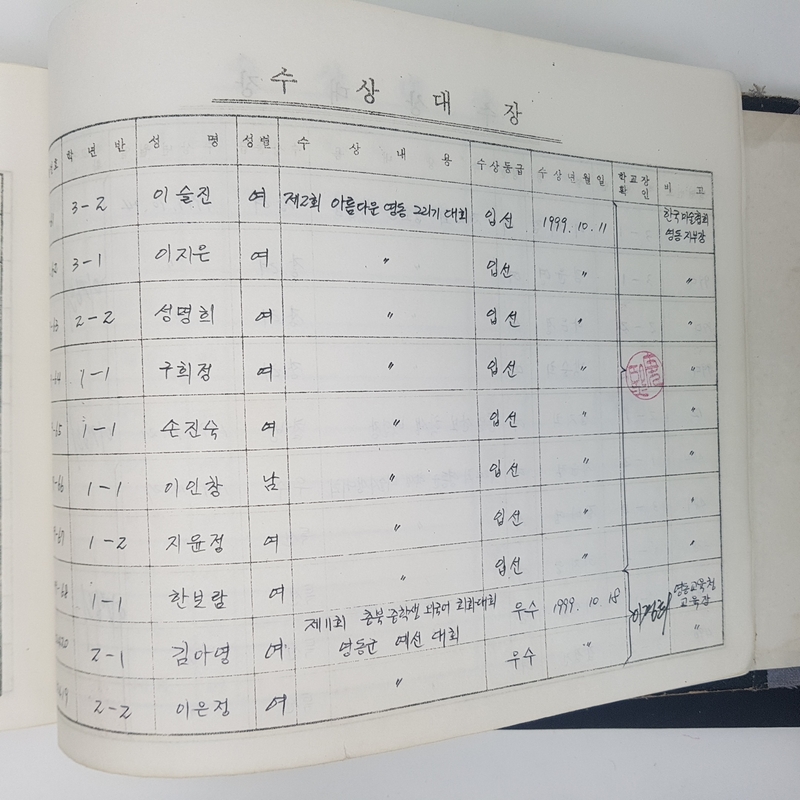 수 상 대 장
호 학 년 반 성 명 성별 수 상 내 용 수상등급 수상년월일 학교장 확 인 비 고
3-2 이슬진 여 제2회 아름다운 영동 그리기 대회 입선 1999.10.11 한국미술협회 영동지부장
3-1 이지은 여 〃 입선 〃 〃
2-2 성명희 여 〃 입선 〃 〃
1-1 구희정 여 〃 입선 〃 〃
1-1 손진숙 여 〃 입선 〃 〃
1-1 이인창 남 〃 입선 〃 〃
1-2 지윤정 여 〃 입선 〃 〃
1-1 한보람 여 〃 입선 〃 〃
2-1 김아영 여 제11회 충북중학생 외국어 회화대회 영동군 예선 대회 우수 1999.10.18 영동교육청 교육장
2-2 이은정 여 〃 우수 〃 〃